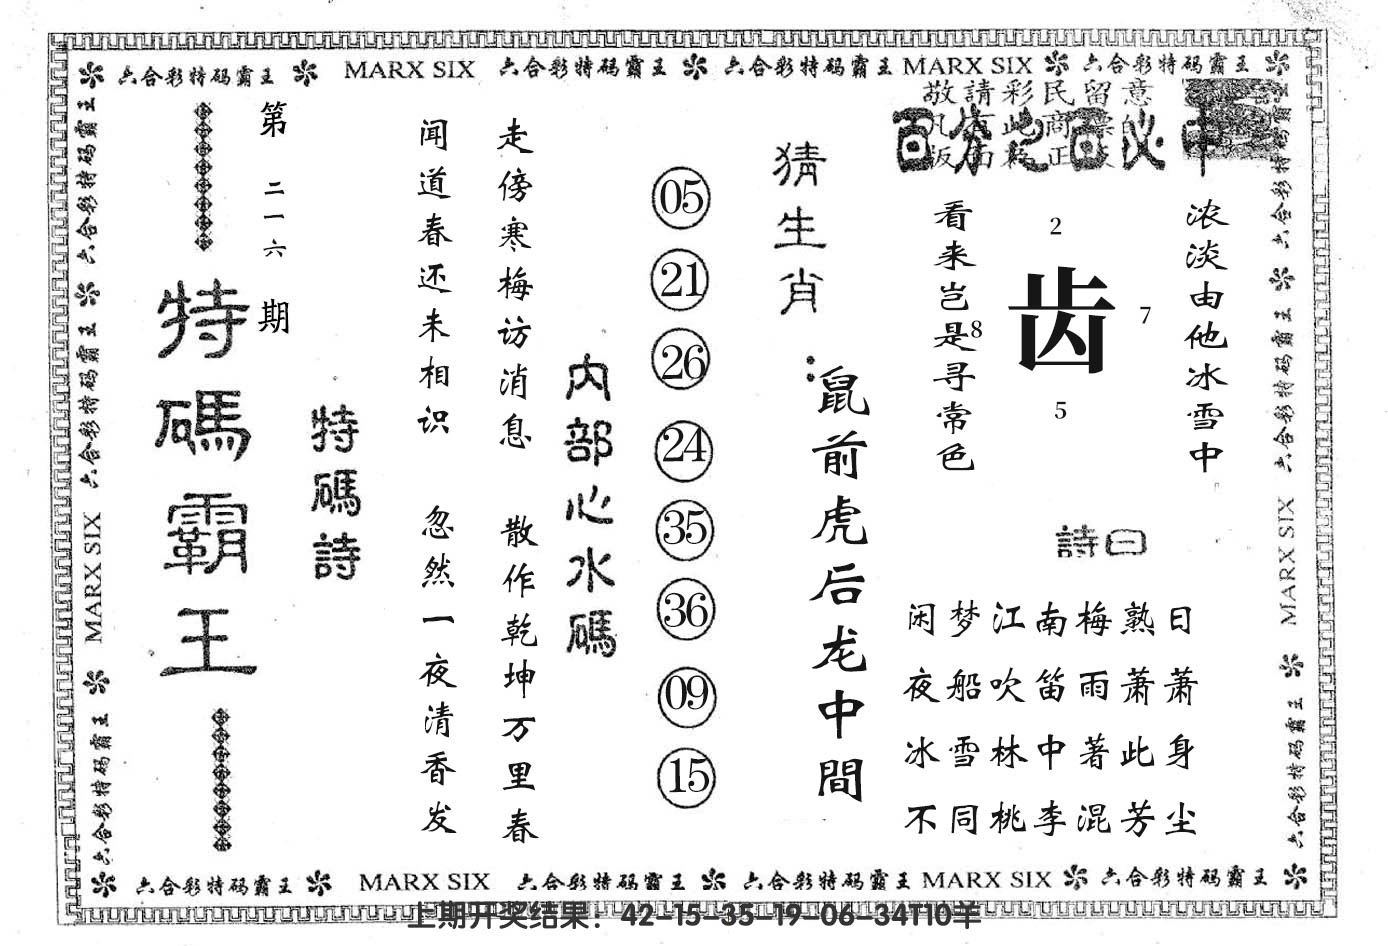 六合彩特码霸王 MARX SIX 六合彩特码霸王 六合彩特码霸王 MARX SIX 六合彩特码霸王
敬請彩民留意
百分之百必中
浓淡由他冰雪中
看来岂是寻常色
2
8
齿
7
5
詩曰
闲梦江南梅熟日
夜船吹笛雨萧萧
冰雪林中著此身
不同桃李混芳尘
猜生肖：
鼠前虎后龙中間
05
21
26
24
35
36
09
15
内部心水碼
走傍寒梅访消息 散作乾坤万里春
闻道春还未相识 忽然一夜清香发
特碼詩
第二一六期
特碼霸王
六合彩特码霸王 六合彩特码霸王 MARX SIX 六合彩特码霸王
六合彩特码霸王 六合彩特码霸王 MARX SIX 六合彩特码霸王
六合彩特码霸王 MARX SIX 六合彩特码霸王 六合彩特码霸王 MARX SIX 六合彩特码霸王
上期开奖结果：42-15-35-19-06-34T10羊